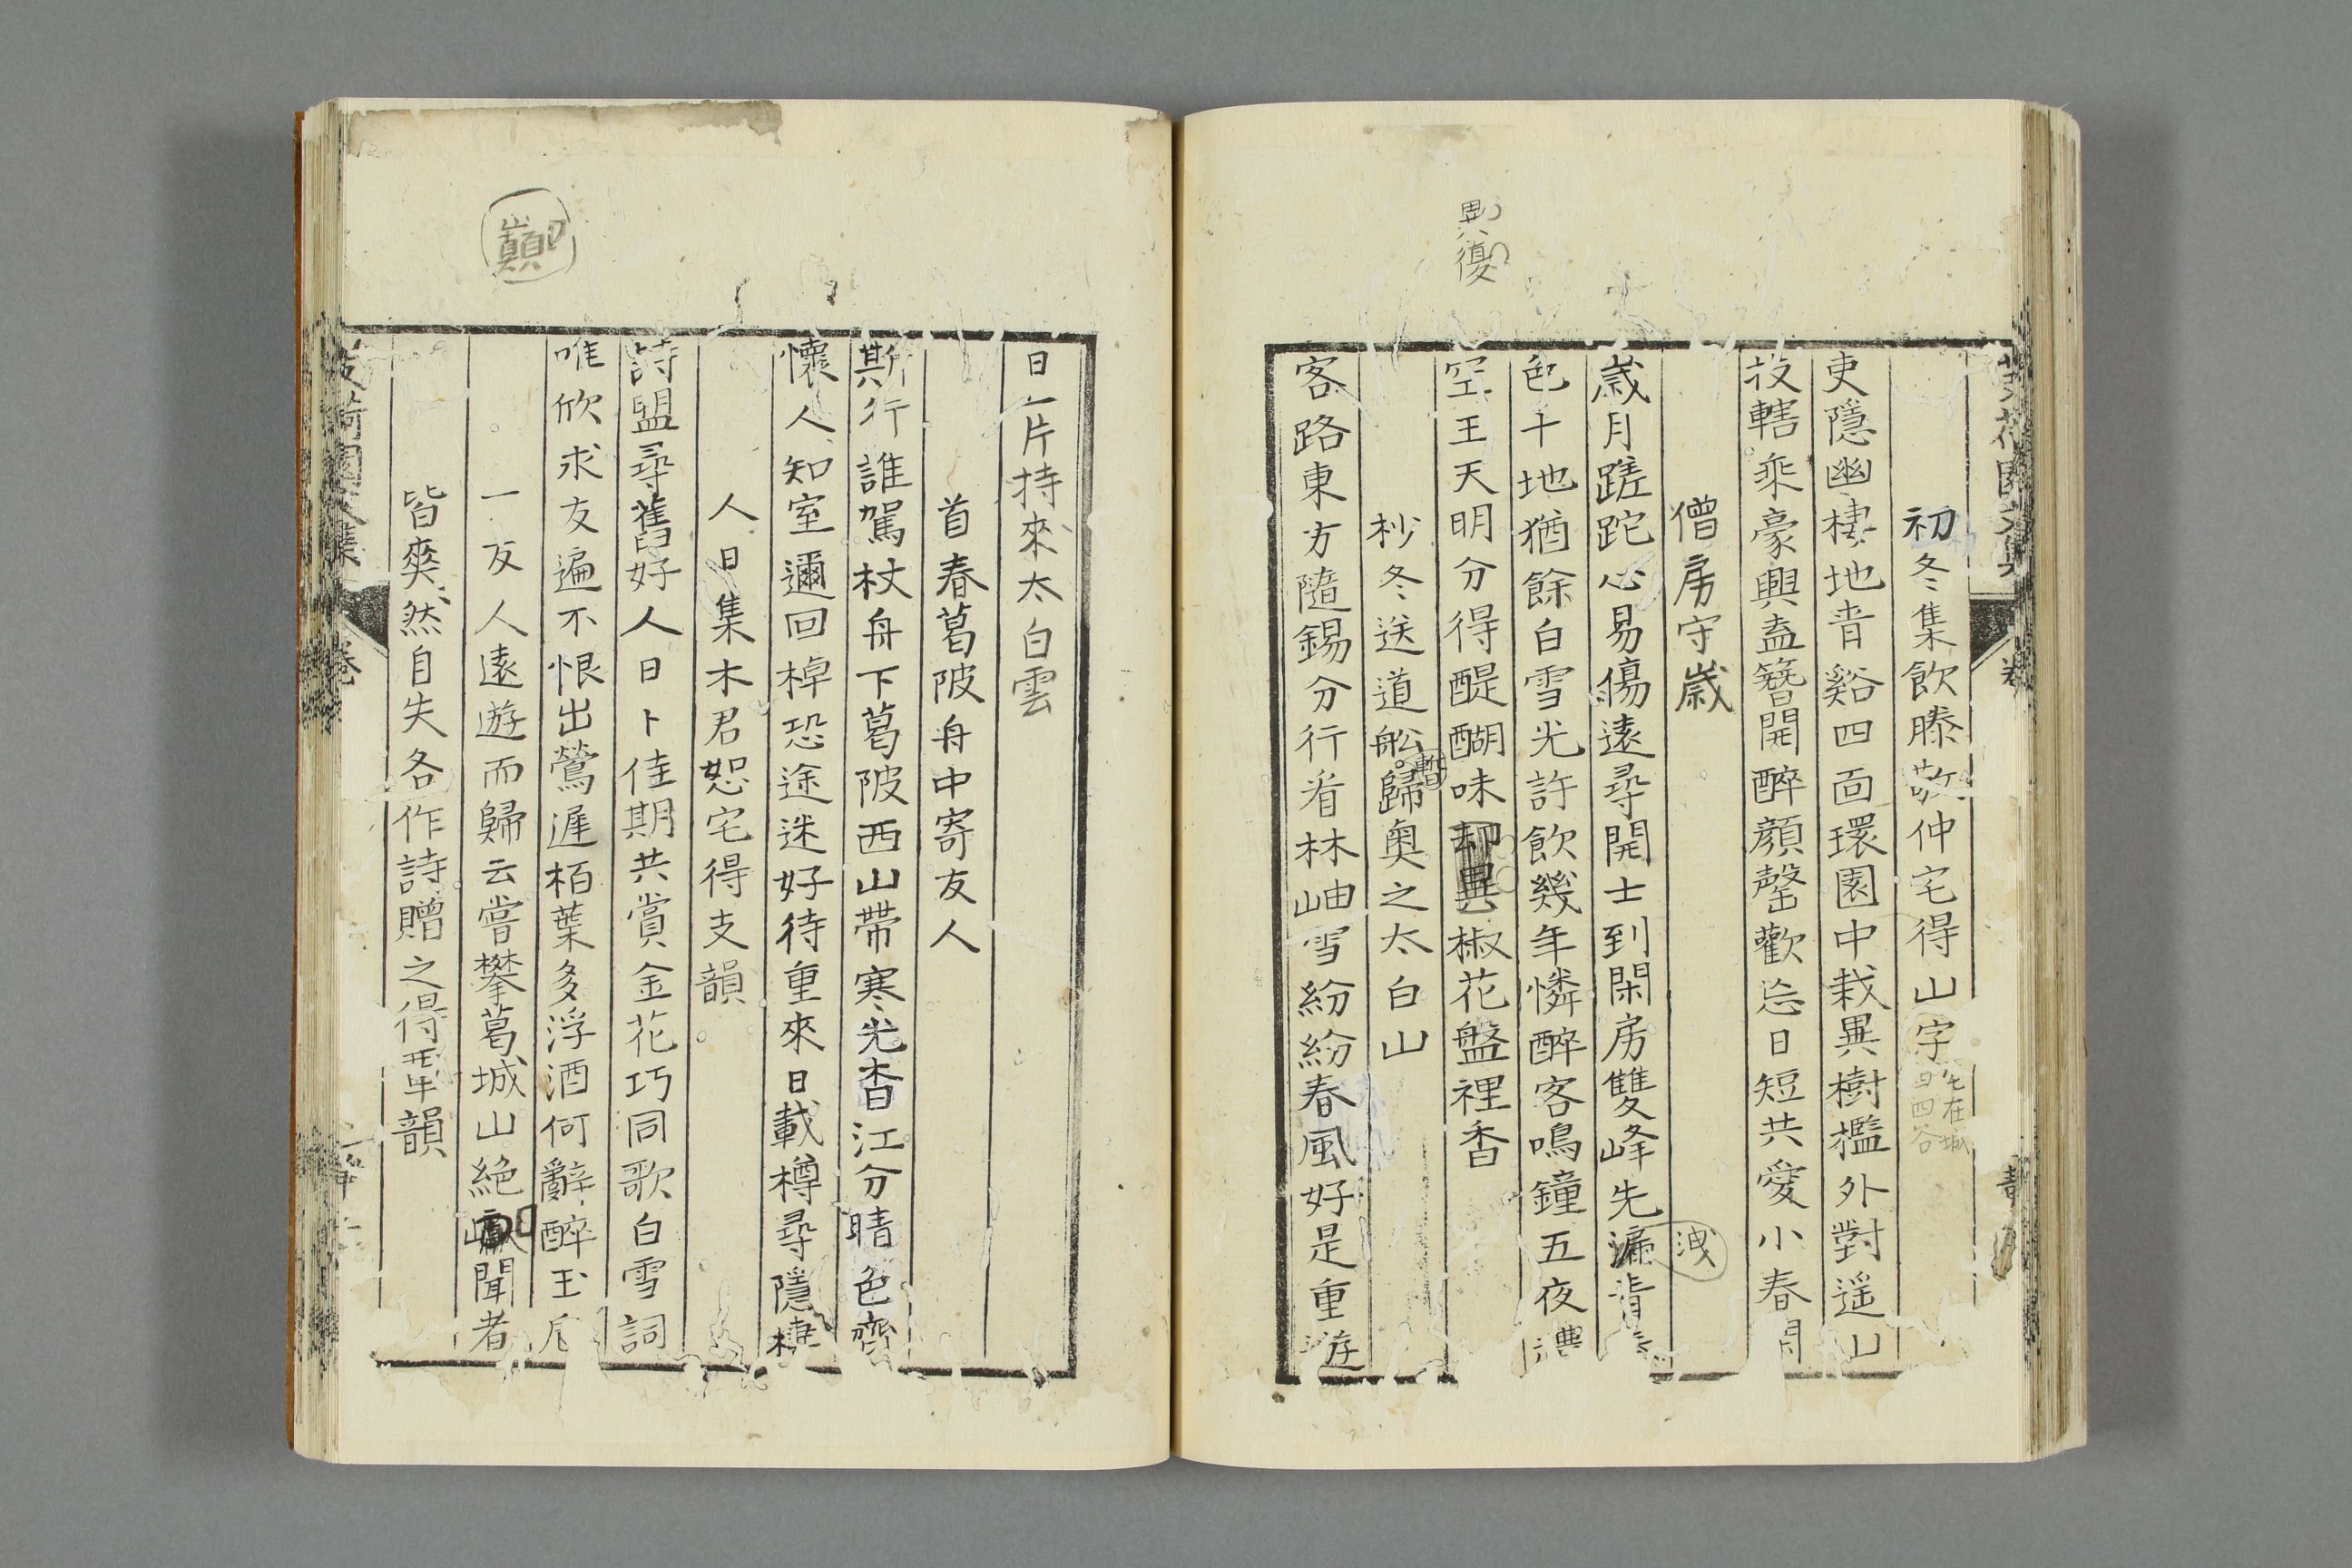 異復
初冬集飲滕敬仲宅得山字宅在城
四谷
吏隱幽棲地音谿四面環園中栽異樹檻外對遥山
投轄乘豪興盍簪開醉顔罄歡忘日短共愛小春閒
僧房守歳
歳月蹉跎心易傷遠尋開士到閑房雙峰先漏
洩
色十地猶餘白雪光許飲幾年憐醉客鳴鐘五夜禮
空王天明分得醍醐味却異椒花盤裡香
杪冬送道舩歸奥之太白山
暫
客路東方隨錫分行看林岫雪紛紛春風好是重遊
日一片持來太白雲
首春葛陂舟中寄友人
斯行誰駕杖舟下葛陂西山帶寒光杳江分晴色齊
懷人知室邇回棹恐途迷好待重來日載樽尋隱棲
人日集木君恕宅得支韻
詩盟尋舊好人日卜佳期共賞金花巧同歌白雪詞
唯欣求友遍不恨出鶯遲栢葉多浮酒何辭醉玉卮
巓
一友人遠遊而歸云嘗攀葛城山絶聞者
皆爽然自失各作詩贈之得韻